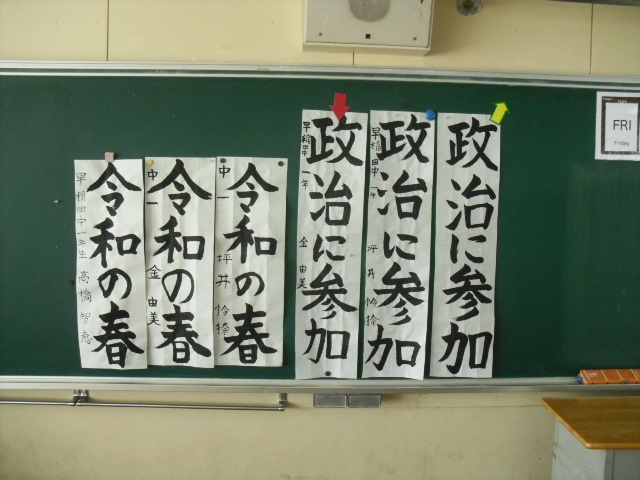 令和の春
早稲田中一年生 高橋 智恵
令和の春
中一 金 由美
令和の春
中一 坪井 怜捺
政治に参加
早稲田中 一年 金 由美
政治に参加
早稲田中 一年 坪井 怜捺
政治に参加
FRI
Friday